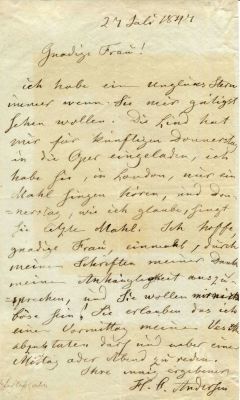 27 Juli 1847
Gnädige Frau!
ich habe ein unglüks Stern
immer wenn Sie mir gütigst
sehen wollen. Die Lind hat
mir für künftigen Donnerstag
in die Oper eingeladen, ich
habe Sie, in London, nur ein
Mahl singen hören, und Don-
=nerstag, wie ich glaube, singt
Sie letzte Mahl. Ich hoffe,
gnädige Frau, einmahl, durch
meinen Schriften meiner Dank
meine Anhänglichkeit auszu
sprechen, und Sie wollen mir nicht
böse sein, Sie erlauben das ich
eine Vormittag meine
abstatten darf und ueber eine
Mittag oder Abend zu reden.
Ihre innig ergebener
H. C. Andersen